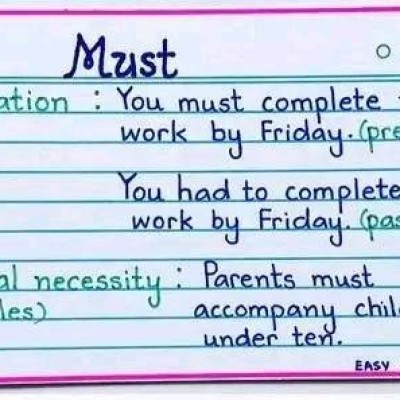 Must
ation : You must complete
work by Friday. (pre
You had to complete
work by Friday. (pas
al necessity : Parents must
les) accompany chil
under ten.
EASY